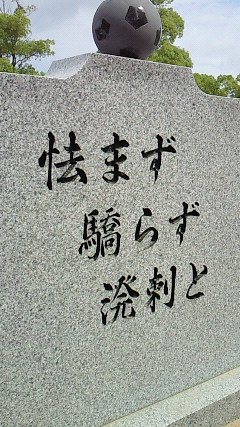 怯まず
驕らず
溌剌と